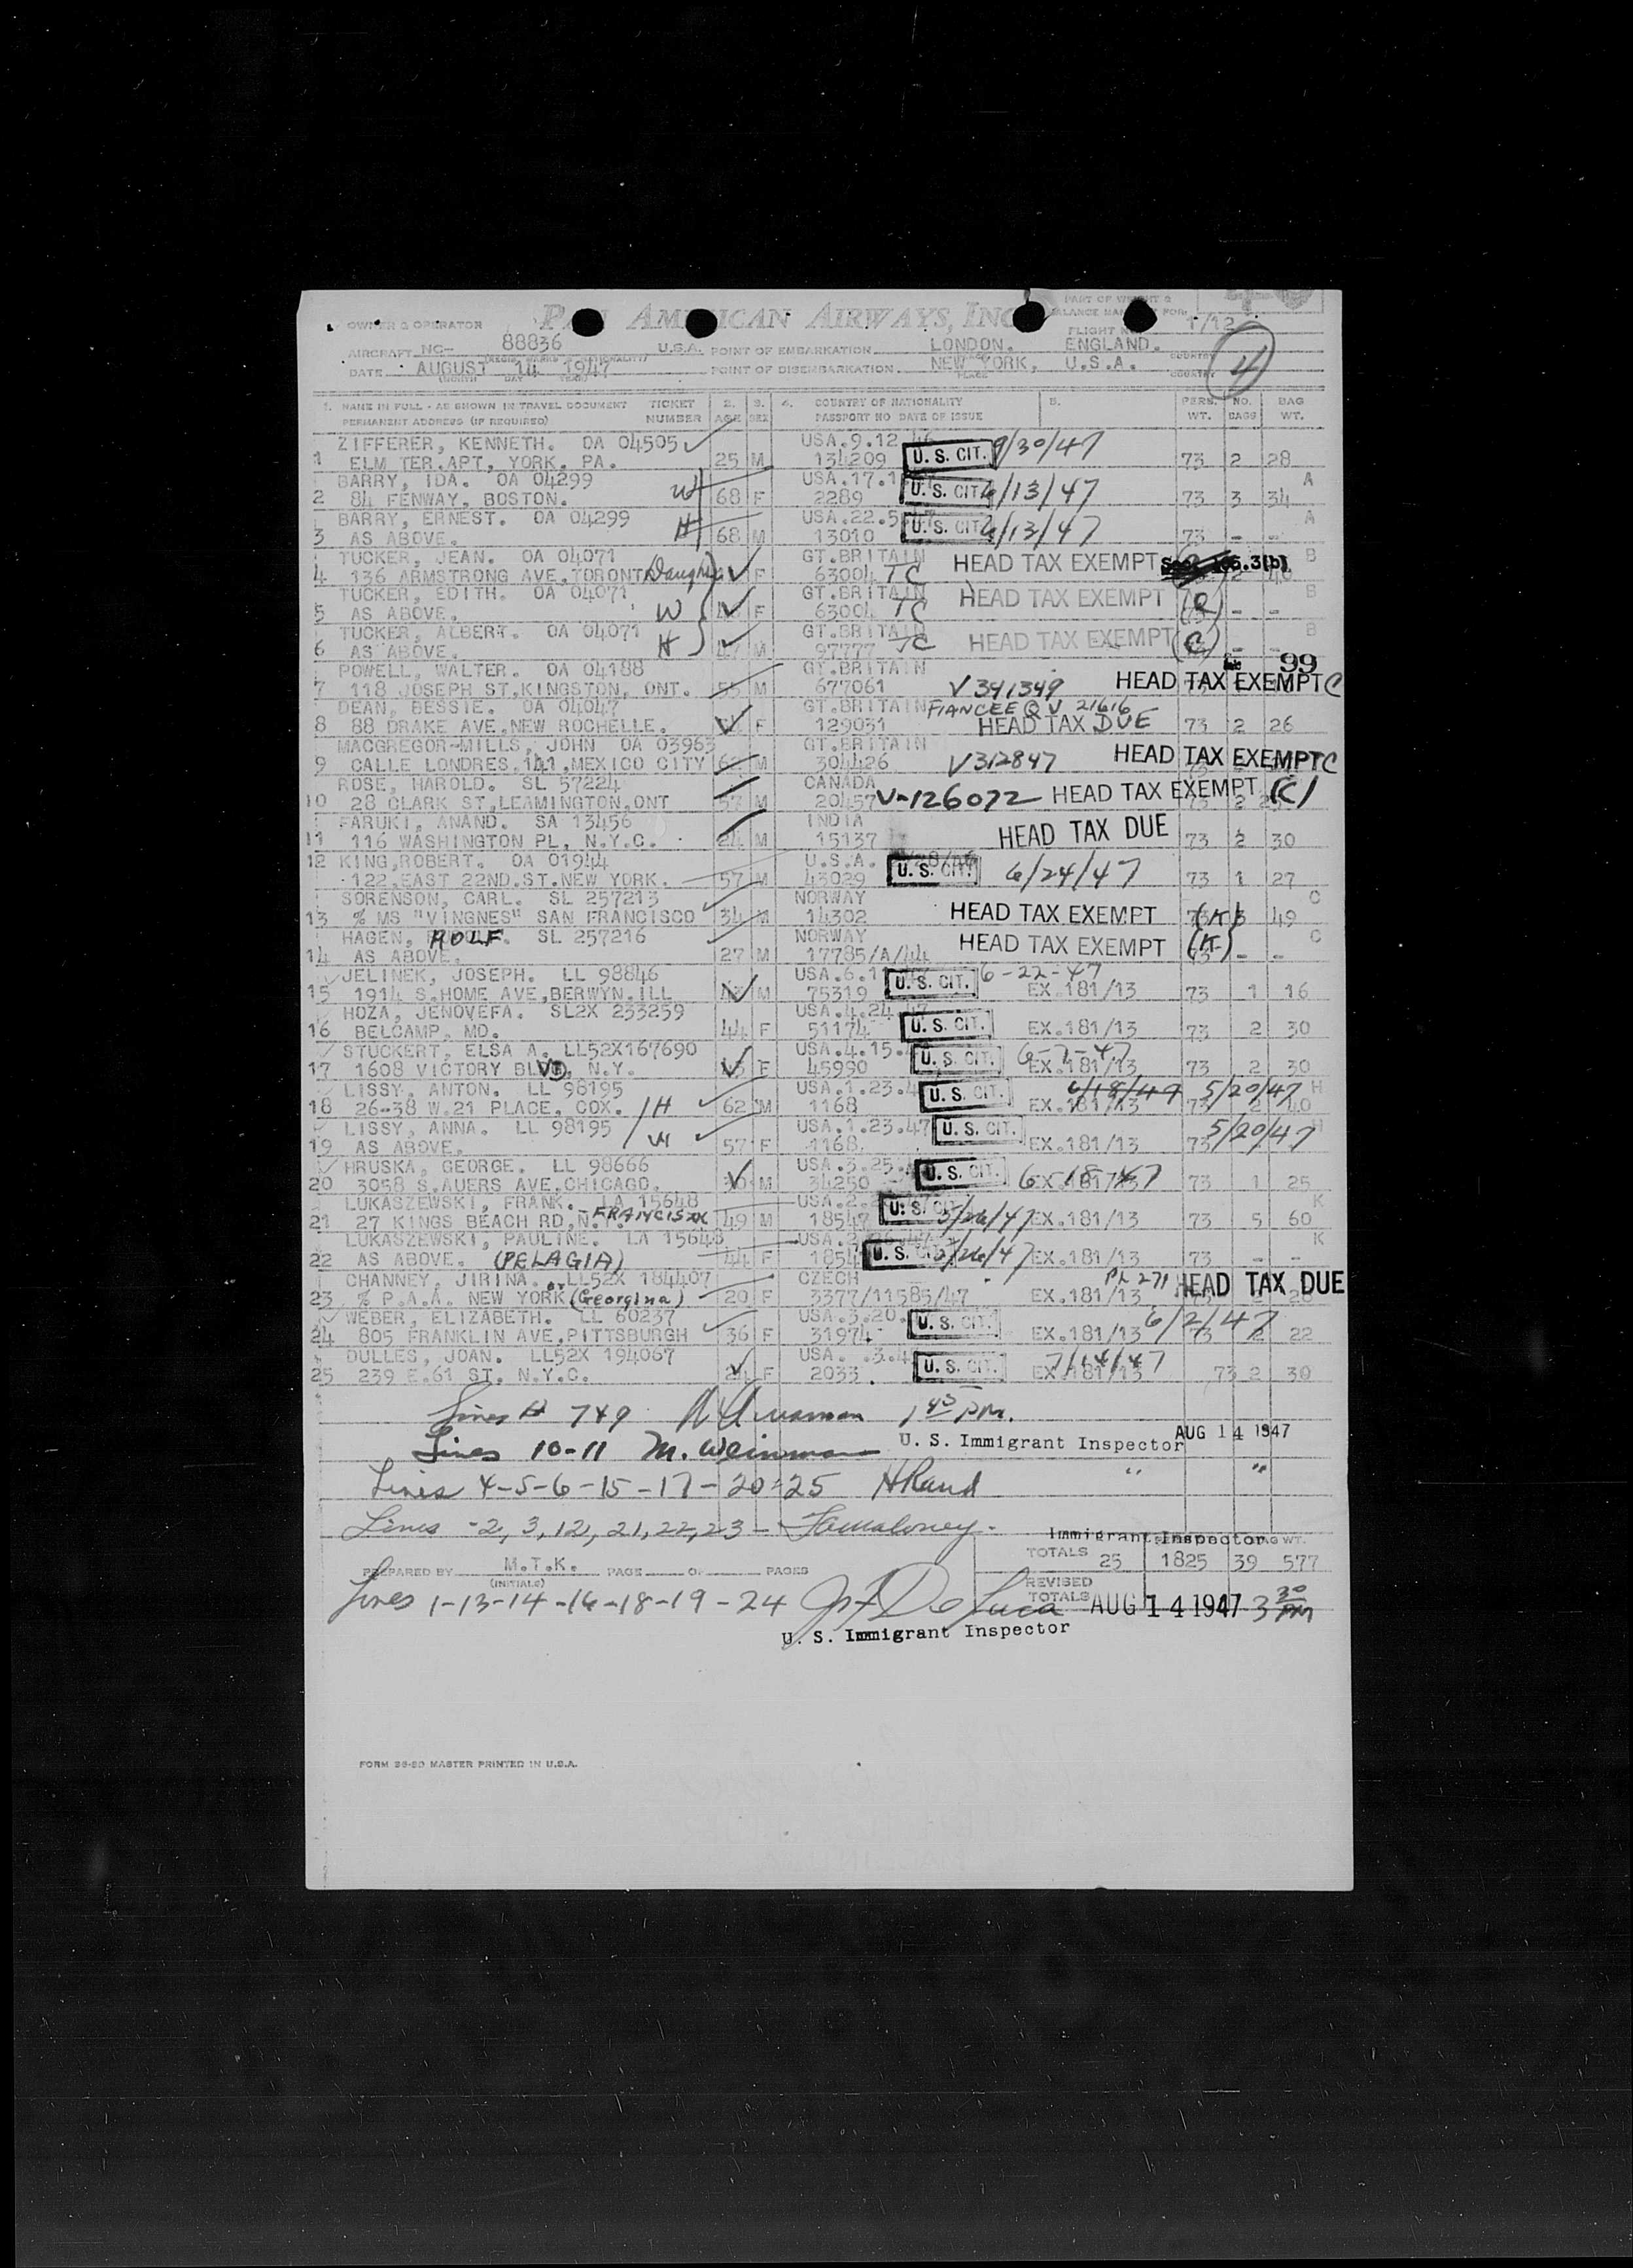 PAN AMERICAN AIRWAYS, INC.
OWNER & OPERATOR
PART OF WEIGHT & BALANCE MANIFEST FOR:
FLIGHT NO. 1/12
4
AIRCRAFT NC- 88836 U.S.A. POINT OF EMBARKATION LONDON. ENGLAND. COUNTRY
(REGIS. MARKS & NATIONALITY)
DATE AUGUST 14 1947 POINT OF DISEMBARKATION NEW YORK, U.S.A. COUNTRY
(MONTH DAY YEAR) PLACE
1. NAME IN FULL - AS SHOWN IN TRAVEL DOCUMENT TICKET 2. 3. 4. COUNTRY OF NATIONALITY 5. PERS. NO. BAG
PERMANENT ADDRESS (IF REQUIRED) NUMBER AGE SEX PASSPORT NO DATE OF ISSUE WT. BAGS WT.
ZIFFERER, KENNETH. OA 04505 USA.9.12.46 9/30/47
1 ELM TER.APT, YORK, PA. 25 M 134209 U. S. CIT. 73 2 28
BARRY, IDA. OA 04299 USA.17.1 A
2 84 FENWAY, BOSTON. W 68 F 2289 U. S. CIT. 6/13/47 73 3 34
BARRY, ERNEST. OA 04299 USA.22.5.47 A
3 AS ABOVE. H 68 M 13010 U. S. CIT. 6/13/47 73 - -
TUCKER, JEAN. OA 04071 GT.BRITAIN HEAD TAX EXEMPT 105.3(b) B
4 136 ARMSTRONG AVE,TORONTO Daughter F 63004 TC 2 40
TUCKER, EDITH. OA 04071 GT.BRITAIN HEAD TAX EXEMPT (C) B
5 AS ABOVE. W F 63004 TC - -
TUCKER, ALBERT. OA 04071 GT.BRITAIN HEAD TAX EXEMPT (C) B
6 AS ABOVE. H 47 M 97777 TC - -
POWELL, WALTER. OA 04188 GT.BRITAIN 99
7 118 JOSEPH ST,KINGSTON, ONT. 55 M 677061 V 341349 HEAD TAX EXEMPT C
DEAN, BESSIE. OA 04047 GT.BRITAIN FIANCEE V 21616
8 88 DRAKE AVE,NEW ROCHELLE. F 129031 HEAD TAX DUE 73 2 26
MACGREGOR-MILLS, JOHN OA 03963 GT.BRITAIN
9 CALLE LONDRES,141,MEXICO CITY M 304426 V312847 HEAD TAX EXEMPT C
ROSE, HAROLD. SL 57224 CANADA
10 28 CLARK ST,LEAMINGTON,ONT 57 M 20457 V-126072 HEAD TAX EXEMPT (C)
FARUKI, ANAND. SA 13456 INDIA
11 116 WASHINGTON PL, N.Y.C. 24 M 15137 HEAD TAX DUE 73 2 30
12 KING,ROBERT. OA 01944 U.S.A.
122,EAST 22ND.ST.NEW YORK. 57 M 43029 U. S. CIT. 6/24/47 73 1 27
SORENSON, CARL. SL 257213 NORWAY C
13 % MS "VINGNES" SAN FRANCISCO 34 M 14302 HEAD TAX EXEMPT (K) 3 49
HAGEN, ROLF. SL 257216 NORWAY C
14 AS ABOVE. 27 M 17785/A/44 HEAD TAX EXEMPT (K) - -
JELINEK, JOSEPH. LL 98846 USA.6.11 6-22-47
15 1914 S.HOME AVE,BERWYN.ILL M 75319 U. S. CIT. EX.181/13 73 1 16
HOZA, JENOVEFA. SL2X 233259 USA.4.24.47
16 BELCAMP, MD. 44 F 51174 U. S. CIT. EX.181/13 73 2 30
STUCKERT, ELSA A. LL52X167690 USA.4.15. 6-7-47
17 1608 VICTORY BLVD, N.Y. F 45990 U. S. CIT. EX.181/13 73 2 30
LISSY, ANTON. LL 98195 USA.1.23.4 6/18/47 5/20/47 H
18 26-38 W.21 PLACE, COX. H 62 M 1168 U. S. CIT. EX.181/13 73 2 40
LISSY, ANNA. LL 98195 USA.1.23.47 5/20/47 H
19 AS ABOVE. W 57 F 1168. U. S. CIT. EX.181/13 73
HRUSKA, GEORGE. LL 98666 USA.3.25.
20 3058 S.AUERS AVE,CHICAGO. M 34250 U. S. CIT. 6-18-47 EX.181/13 73 1 25
LUKASZEWSKI, FRANK. LA 15648 USA.2. K
21 27 KINGS BEACH RD,N. FRANCISZK 49 M 18547 U. S. CIT. 5/26/47 EX.181/13 73 5 60
LUKASZEWSKI, PAULINE. LA 15648 USA.2 K
22 AS ABOVE. (PELAGIA) 44 F 1854 U. S. CIT. 5/26/47 EX.181/13 73 - -
CHANNEY, JIRINA. or LL52X 184407 CZECH PL 271 HEAD TAX DUE
23 % P.A.A. NEW YORK (Georgina) 20 F 3377/11585/47 EX.181/13
WEBER, ELIZABETH. LL 60237 USA.3.20. 6/2/47
24 805 FRANKLIN AVE,PITTSBURGH 36 F 31974 U. S. CIT. EX.181/13 73 2 22
DULLES, JOAN. LL52X 194067 USA. .3.4 7/14/47
25 239 E.61 ST. N.Y.C. 24 F 2033. U. S. CIT. EX.181/13 73 2 30
Lines 7 & 9 1 45 PM.
Lines 10-11 M. Weinman U. S. Immigrant Inspector AUG 14 1947
Lines 4-5-6-15-17-20-25 H Rand " "
Lines -2, 3, 12, 21, 22, 23 - Maloney.
Immigrant Inspector
TOTALS 25 1825 39 577
PREPARED BY M.T.K. PAGE OF PAGES
(INITIALS)
REVISED TOTALS
Lines 1-13-14-16-18-19-24 De Luca AUG 14 1947 3 30 PM
U. S. Immigrant Inspector
FORM 36-3D MASTER PRINTED IN U.S.A.